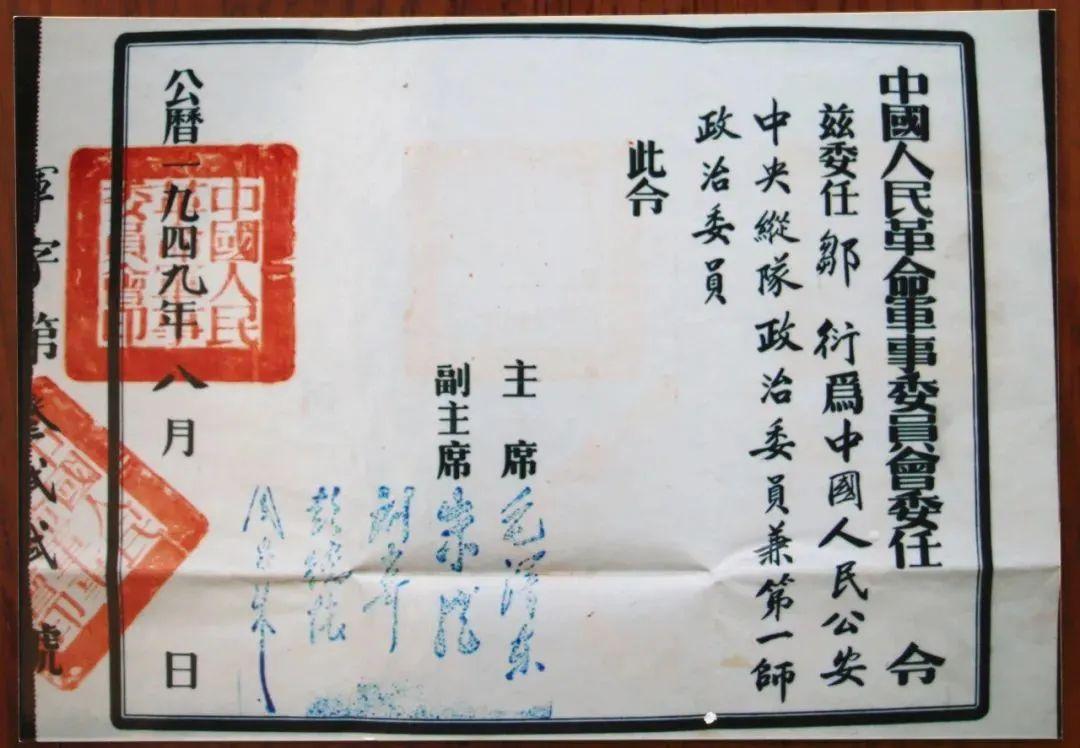 中國人民革命軍事委員會委任令
兹委任鄒衍爲中國人民公安
中央縱隊政治委員兼第一師
政治委員
此令
主席 毛澤東
副主席 朱德
劉少奇
彭德懷
周恩來
公曆一九四九年八月 日
中國人民革命軍事委員會印
軍字第叁貳貳號